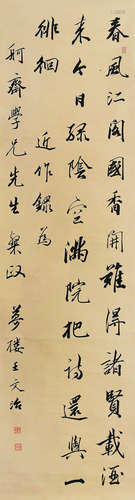 春風江閣國香開難得諸賢載酒
來今日綠陰空滿院把詩還與一
徘徊 近作錄為
舸齋學兄先生粲政 夢樓王文治